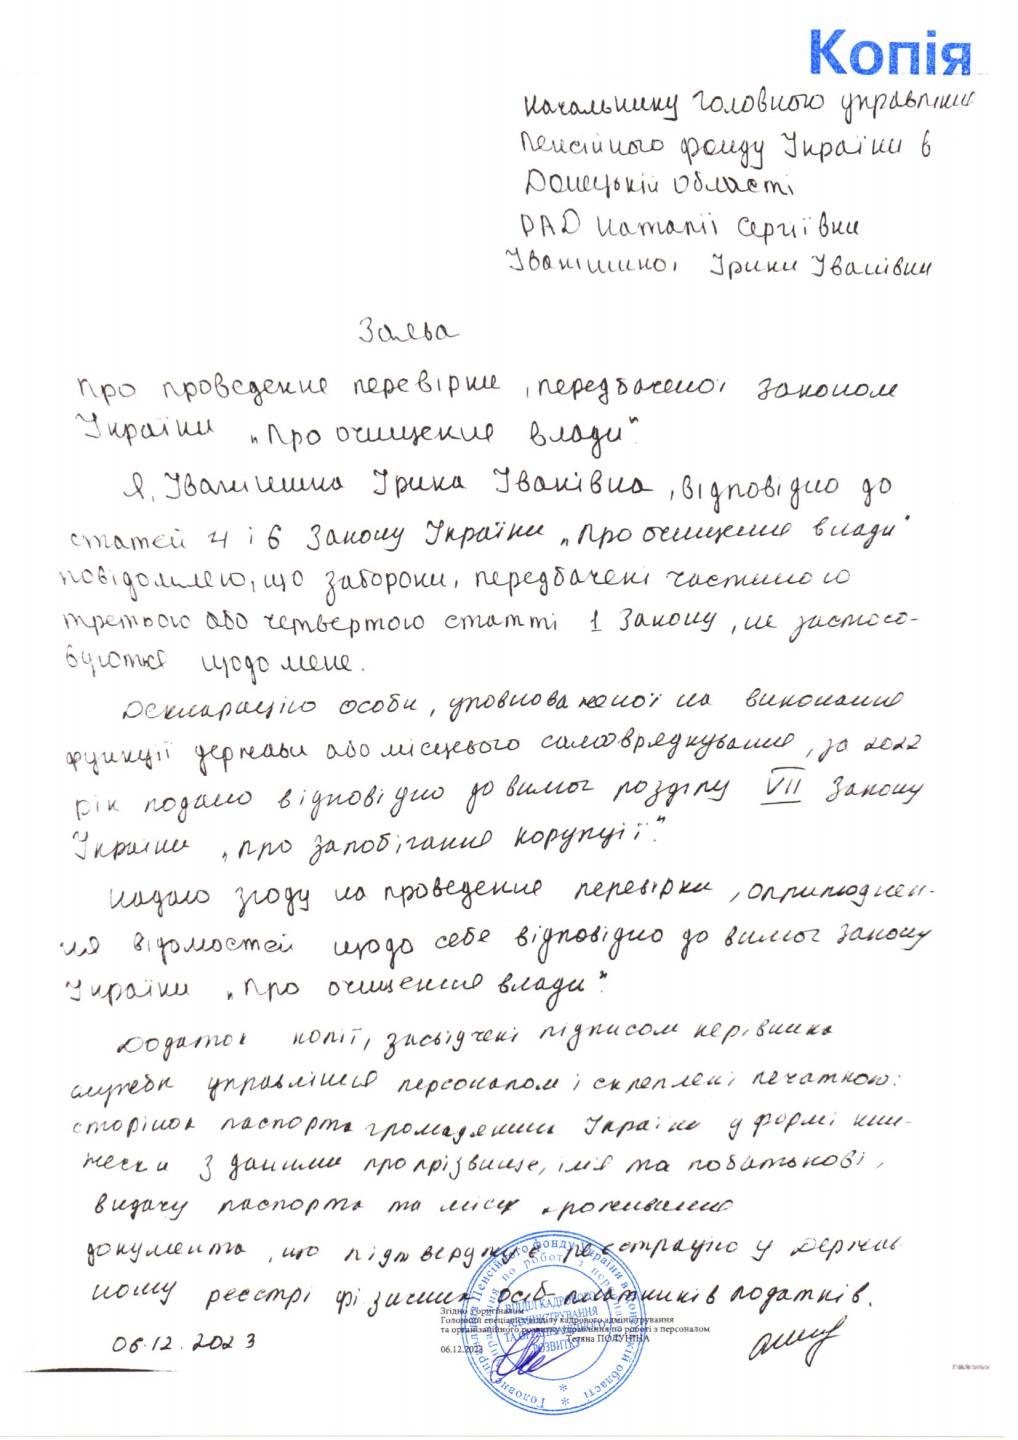 Копія
Начальнику Головного управління
Пенсійного фонду України в
Донецькій області
РАД Наталії Сергіївни
Іванішиної Ірини Іванівни
Заява
Про проведення перевірки, передбаченої Законом
України „Про очищення влади"
Я, Іванішина Ірина Іванівна, відповідно до
статей 4 і 6 Закону України „Про очищення влади"
повідомляю, що заборони, передбачені частиною
третьою або четвертою статті 1 Закону, не застосо-
вуються щодо мене.
Декларацію особи, уповноваженої на виконання
функції держави або місцевого самоврядкування, за 2022
рік подано відповідно до вимог розділу VII Закону
України „Про запобігання корупції".
Надаю згоду на проведення перевірки, оприлюднен-
ня відомостей щодо себе відповідно до вимог Закону
України „Про очищення влади".
Додаток копії, засвідчені підписом керівника
служби управління персоналом і скріплені печаткою:
сторінок паспорта громадянина України у формі кни-
жечки з даними про прізвище, імя та побатькові,
видачу паспорта та місце проживання
документа, що підтверджує реєстрацію у Держав
ному реєстрі фізичних осіб платників податків.
Згідно з оригіналом
Головний спеціаліст відділу кадрового адміністрування
та організаційного розвитку управління по роботі з персоналом
Тетяна ПОЛУНІНА
06.12.2023
06.12.2023
Головне управління Пенсійного фонду України в Донецькій області
Управління по роботі з персоналом
ВІДДІЛ КАДРОВОГО
АДМІНІСТРУВАННЯ
ТА ОРГАНІЗАЦІЙНОГО
РОЗВИТКУ